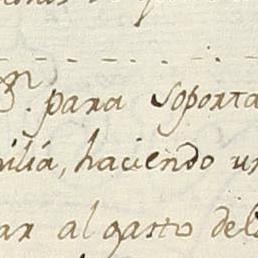 para soporta
ilia, haciendo un
ar al gasto del